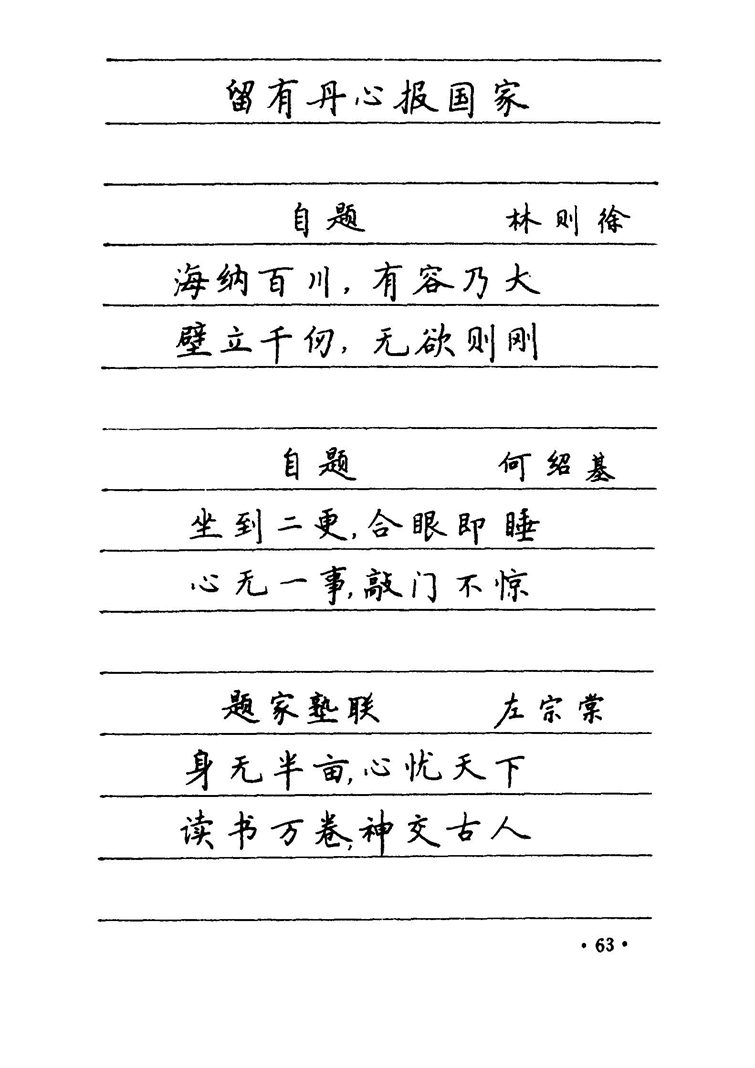 留有丹心报国家
自题 林则徐
海纳百川,有容乃大
壁立千仞,无欲则刚
自题 何绍基
坐到二更,合眼即睡
心无一事,敲门不惊
题家塾联 左宗棠
身无半亩,心忧天下
读书万卷,神交古人
·63·